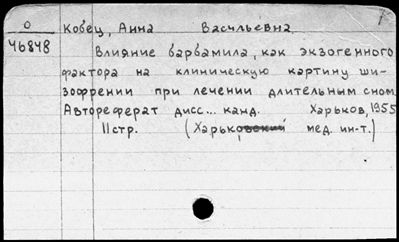 О
46848
Кобец, Анна Васильевна
Влияние барбамила, как экзогенного
фактора на клиническую картину ши-
зофрении при лечении длительным сном.
Автореферат дисс... канд. Харьков, 1955
11стр. (Харьковский мед. ин-т.)